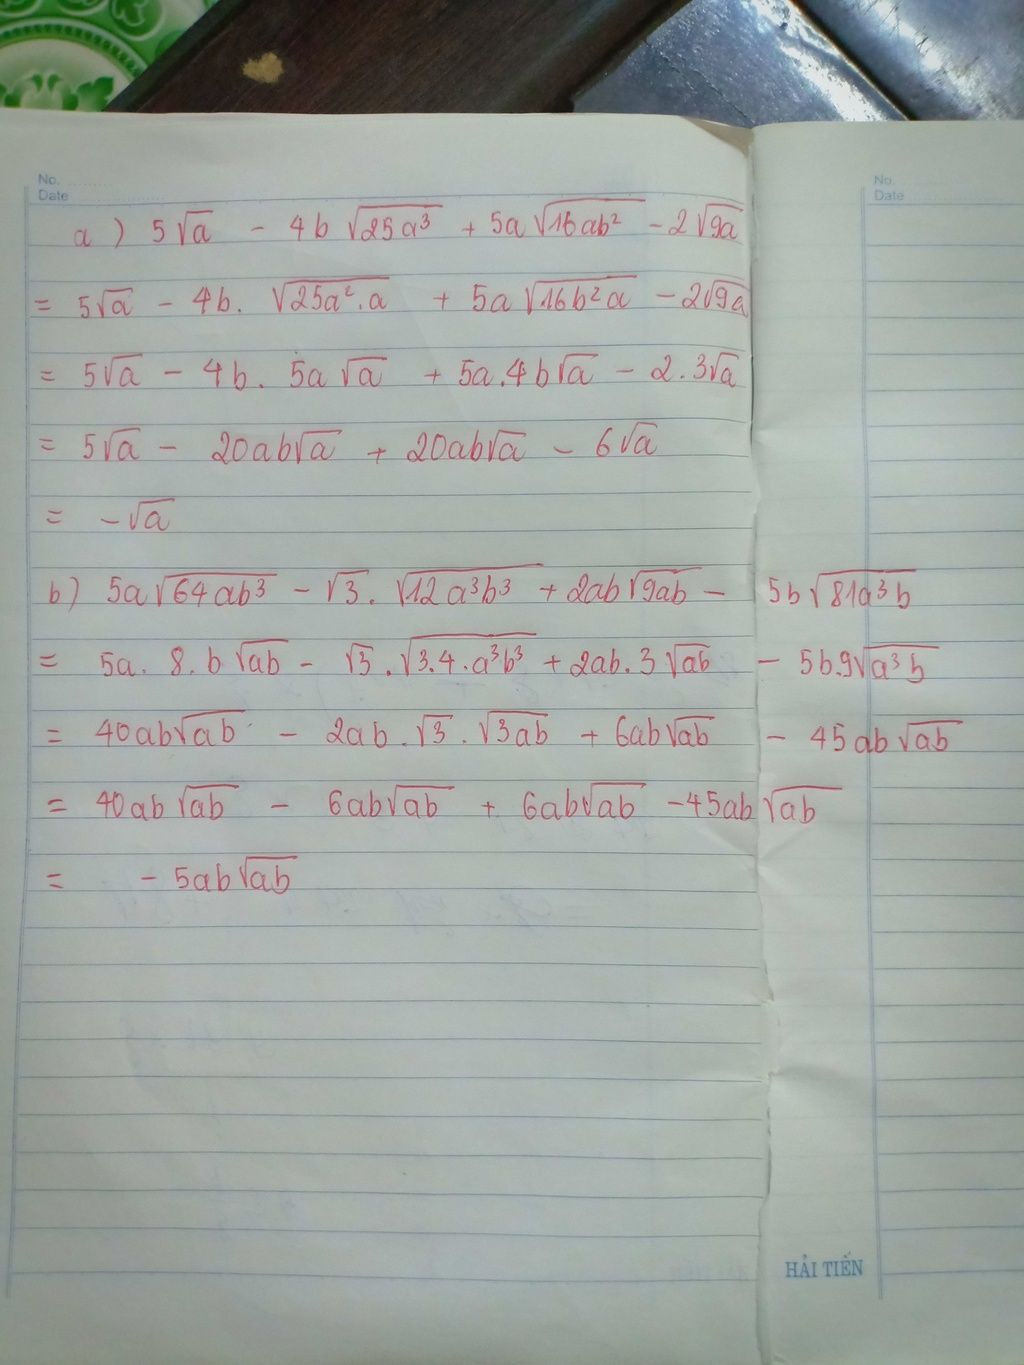 No. ............
Date ....................
No. ............
Date ....................
a) 5√a - 4b √25a³ + 5a √16ab² - 2√9a
= 5√a - 4b. √25a².a + 5a √16b²a - 2√9a
= 5√a - 4b. 5a √a + 5a.4b√a - 2.3√a
= 5√a - 20ab√a + 20ab√a - 6√a
= -√a
b) 5a√64ab³ - √3. √12a³b³ + 2ab√9ab - 5b√81a³b
= 5a. 8. b √ab - √3 . √3.4.a³b³ + 2ab.3√ab - 5b.9√a³b
= 40ab√ab - 2ab.√3 . √3ab + 6ab√ab - 45ab√ab
= 40ab √ab - 6ab√ab + 6ab√ab - 45ab √ab
= - 5ab√ab
HẢI TIẾN